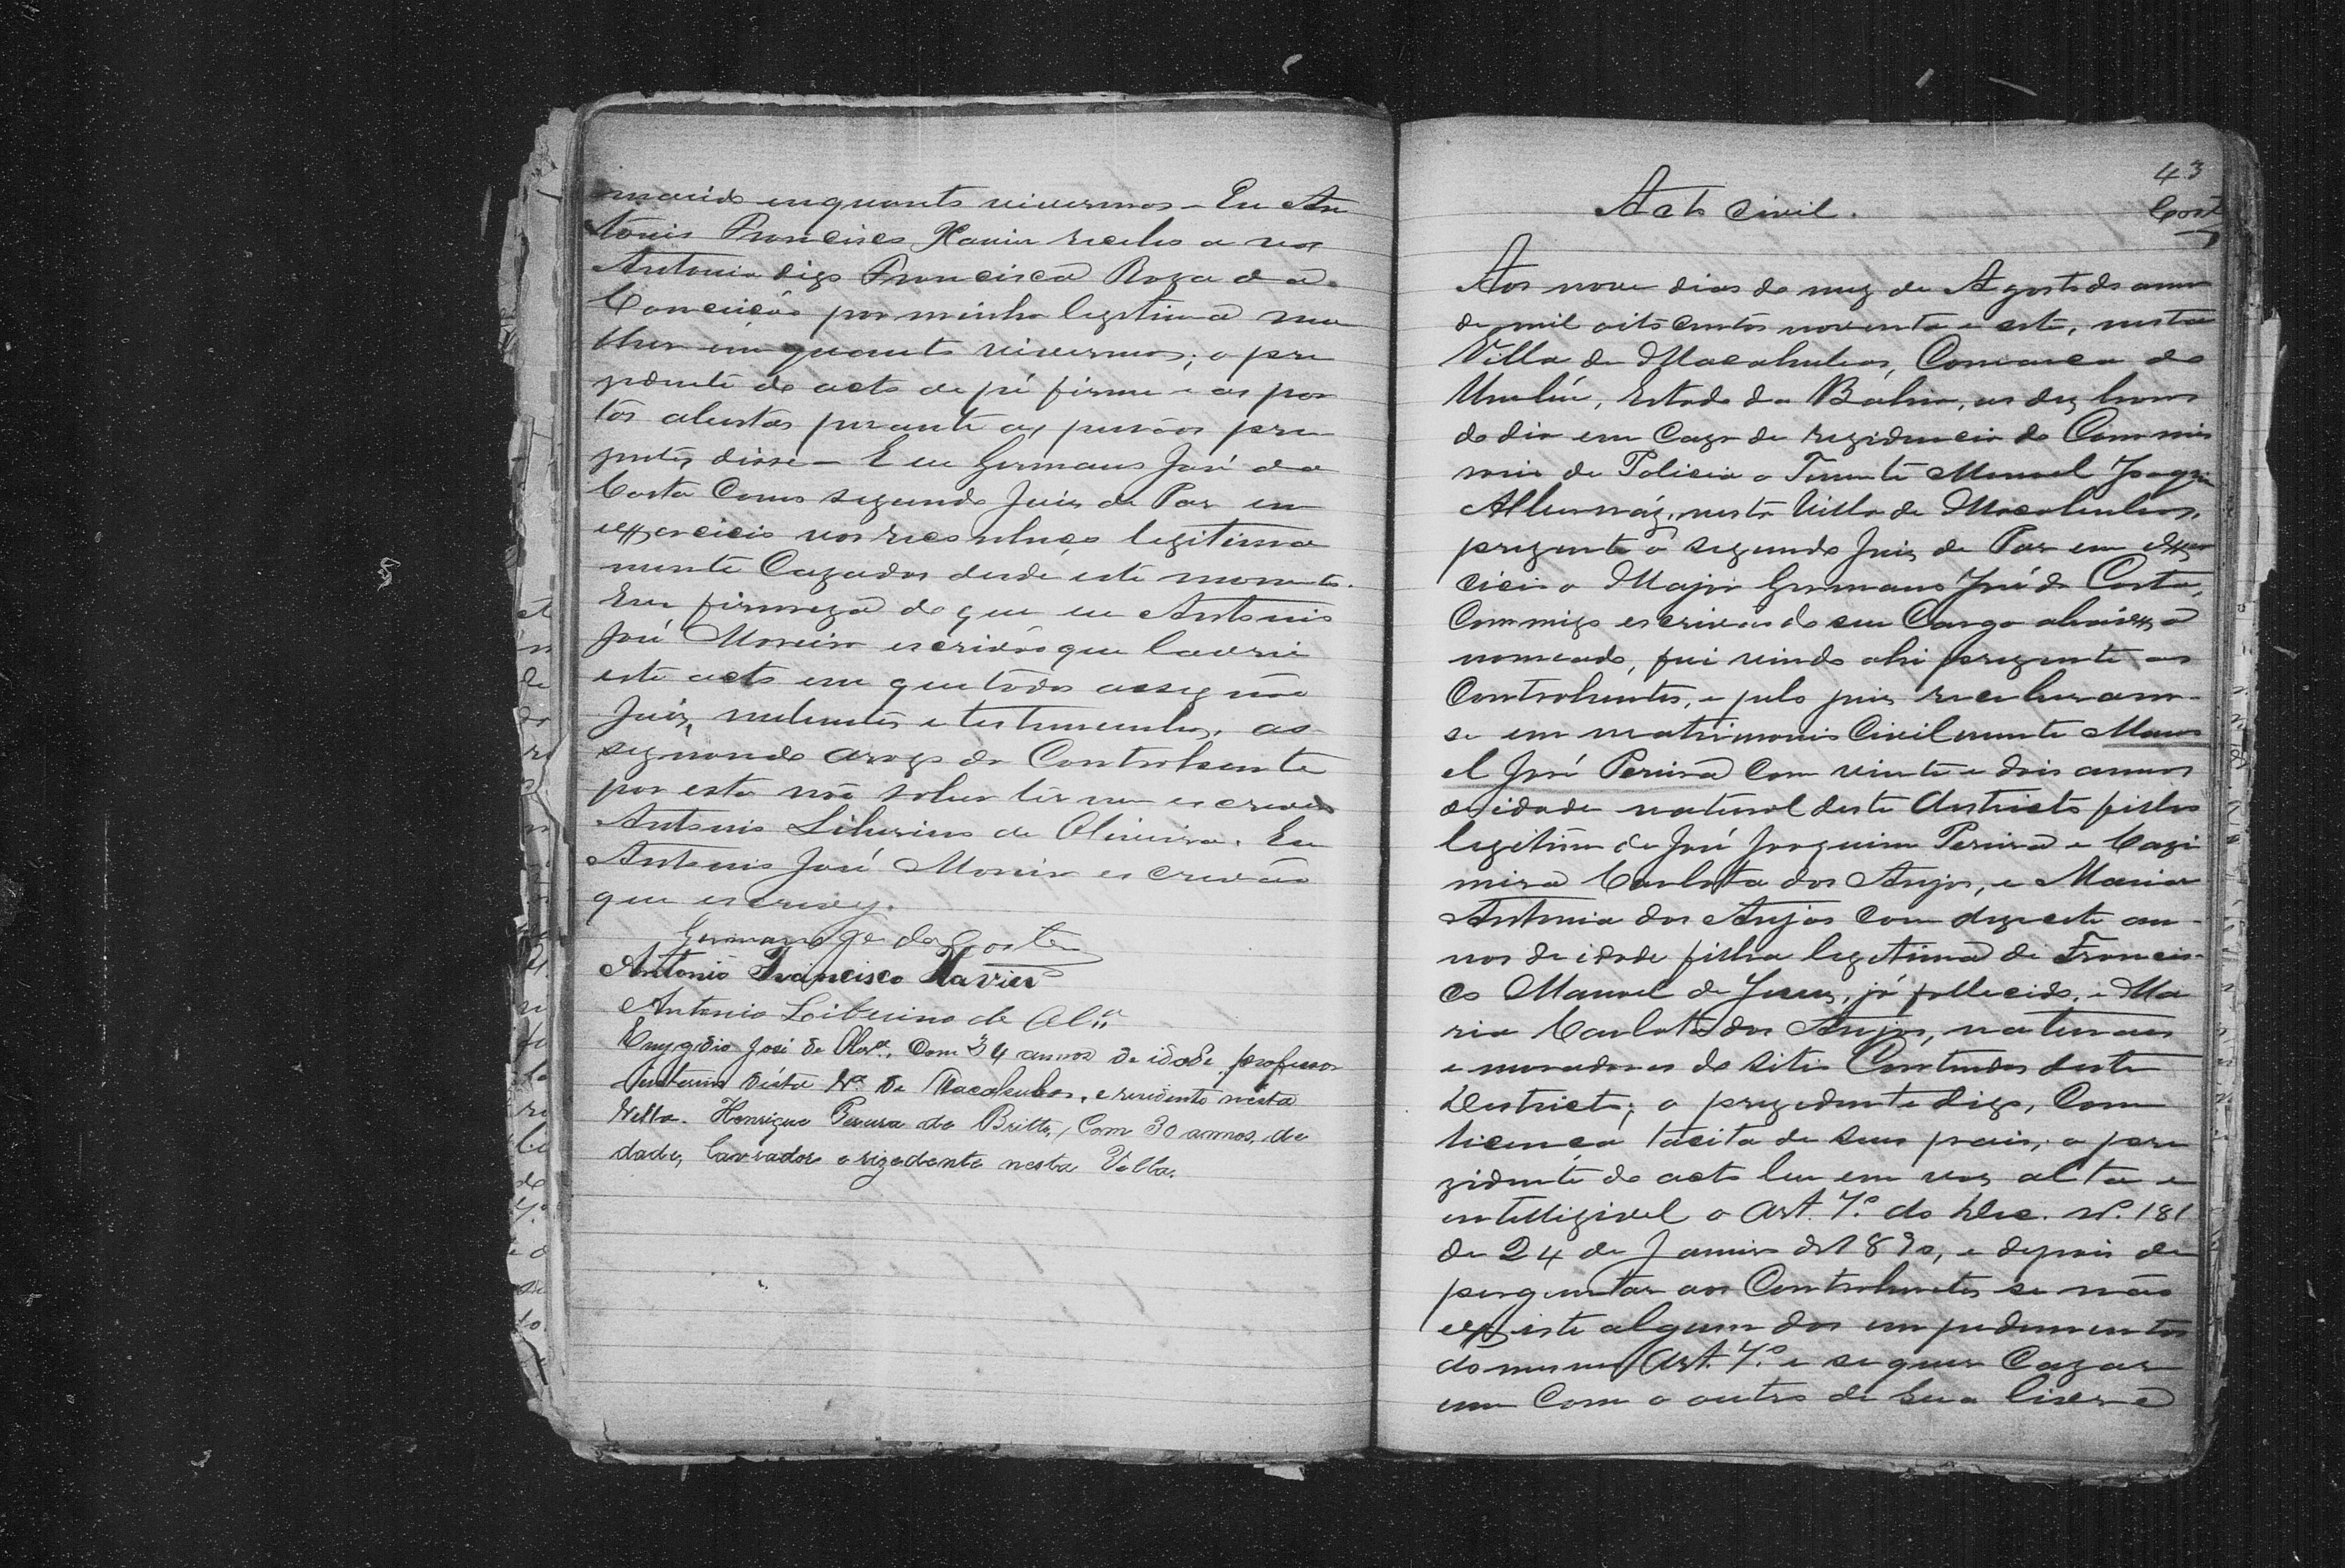 marido enquanto vivermos – Eu An
tonio Francisco Xavier recebo a vos
Antonia digo Francisca Roza da
Conceição por minha legitima mu
lher em quanto vivermos; o pre
zidente do acto de pé firme e as por
tas abertas perante as pessoas pre
zentes disse – E eu Germano José da
Costa Como segundo Juis de Pas em
exxercicio vos reconheço legitima
mente Cazados desde este momento.
Em firmeza do que eu Antonio
José Moreira escrivão que lavrei
este acto em que todos assignão
Juis, nubentes e testemunhas, as
signando arogo da Contrahente
por esta não saber ler nem escrever
Antonio Liberino de Oliveira. Eu
Antonio José Moreira escrivão
que escrevy.
Germano Je da Costa
Antonio Francisco Xavier
Antonio Liberino de Olª
Emygdio José de Olivª. Com 34 annos de idade, professor
interino désta Vª de Macahubas, e residente nesta
Villa. Henrique Pereira de Britto, Com 30 annos, de
dade, lavrador e rezedente nesta Villa.
43
Acto Civil.
Cost
Aos nove dias do mez de Agosto do anno
de mil oitocentos noventa e sete, nesta
Villa de Macahubas, Comarca do
Urubú, Estado da Bahia, as dez horas
do dia em Caza de rezidencia do Commis
sario de Policia o Tenente Manoel Joaquim
nesta Villa de Macahubas,
prezente o segundo Juis de Pas em exxer
cicio o Major Germano José da Costa,
Commigo escrivão do seu Cargo abaixxo
nomeado, fui vindo ahi prezente os
Contrahentes, e pelo juis receberam-
se em matrimonio Civilmente Mano
el José Pereira com vinte e dois annos
de idade natural deste destricto filho
legitimo de José Joaquim Pereira e Cazi
mira Carlota dos Anjos, e Maria
Antonia dos Anjos com dezesete an
nos de idade filha legitima de Francis-
co Manoel de Jesus, já fallecido, e Ma
ria Carlota dos Anjos, naturaes
e moradores do sitio Contendas deste
Destricto; o prezidente digo, Com
licença tacita de seus pais; o pre
zidente do acto leu em vos alta e
intelligivel o Art. 7.º do Dec. Nº. 181
de 24 de Janeiro de 1890, e depois de
perguntar aos Contrahentes se não
exxiste algum dos impedimentos
do mesmo Art. 7.º e se quer Cazar
um Com o outro de sua livre e